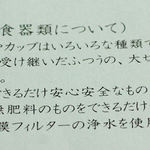 食器類について)
やカップはいろいろな種類で
受け継いだふつうの、大セ
す。
きるだけ安心安全なもの
無肥料のものをできるだけ
膜フィルターの浄水を使用